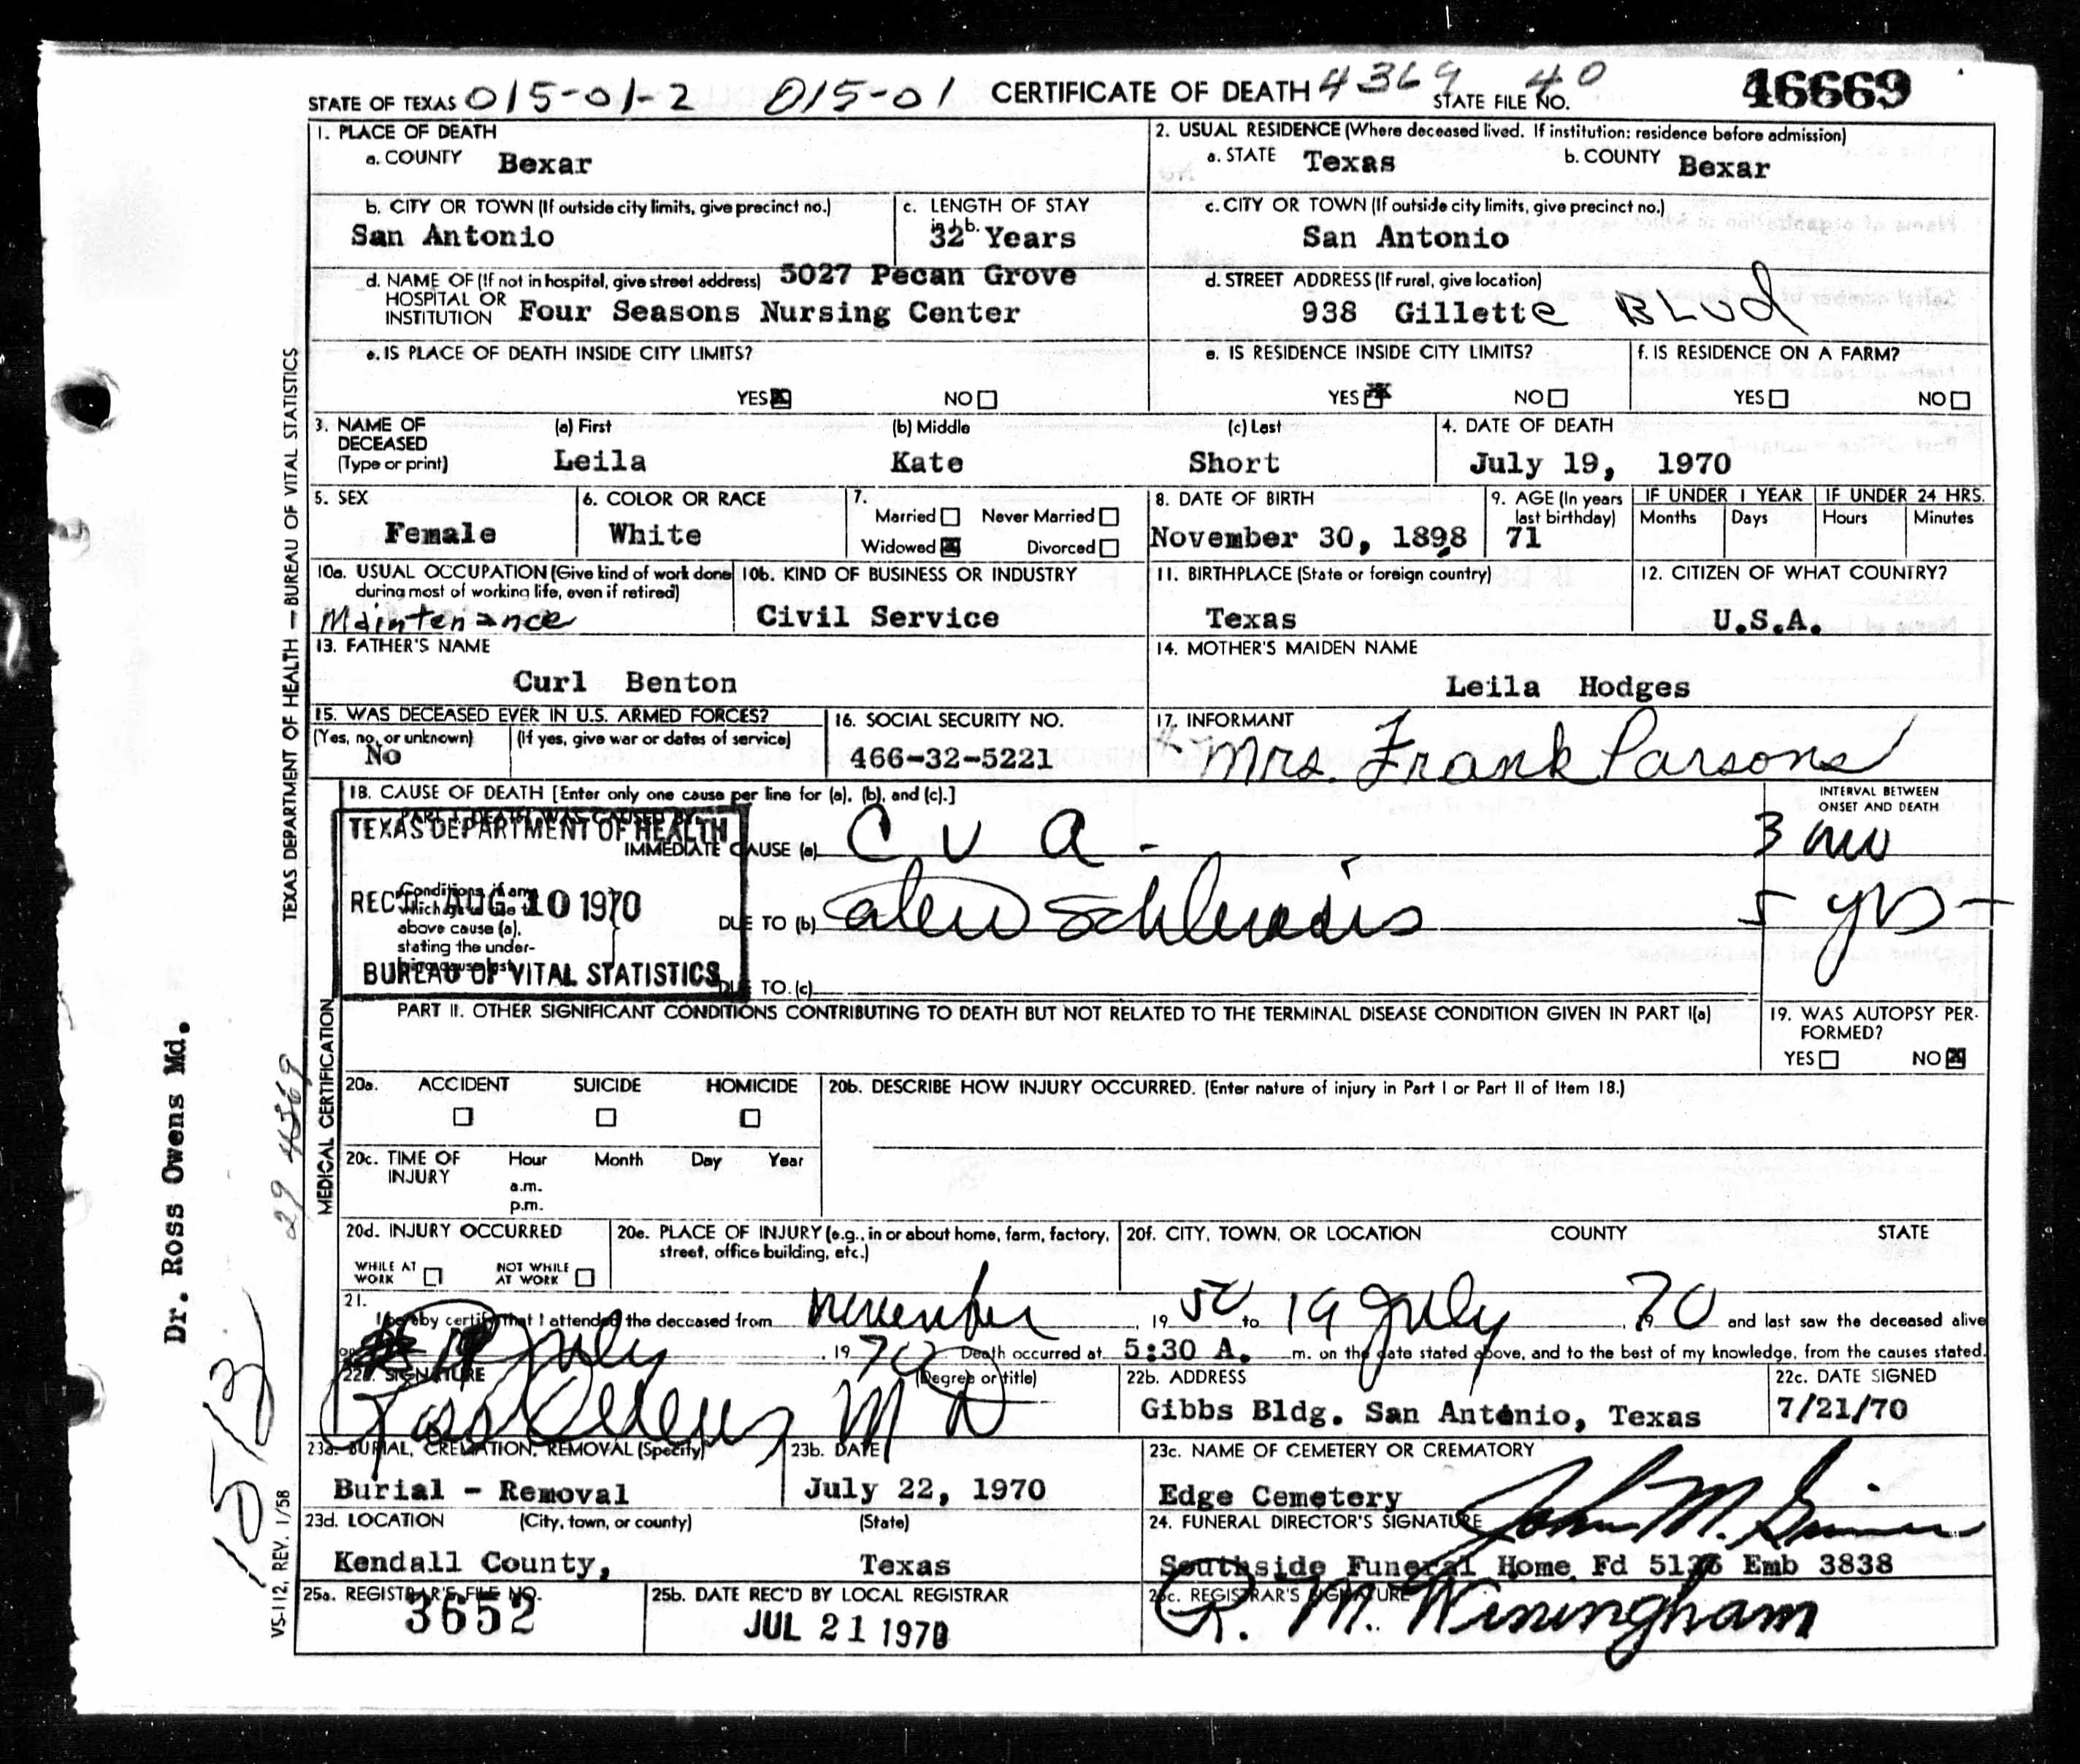 STATE OF TEXAS 015-01-2 015-01 CERTIFICATE OF DEATH 4369 40 STATE FILE NO. 46669
1. PLACE OF DEATH
a. COUNTY Bexar
2. USUAL RESIDENCE (Where deceased lived. If institution: residence before admission)
a. STATE Texas b. COUNTY Bexar
b. CITY OR TOWN (If outside city limits, give precinct no.)
San Antonio
c. LENGTH OF STAY
32 Years
c. CITY OR TOWN (If outside city limits, give precinct no.)
San Antonio
d. NAME OF (If not in hospital, give street address) 5027 Pecan Grove
HOSPITAL OR
INSTITUTION Four Seasons Nursing Center
d. STREET ADDRESS (If rural, give location)
938 Gillette BLvd
e. IS PLACE OF DEATH INSIDE CITY LIMITS?
YES NO
e. IS RESIDENCE INSIDE CITY LIMITS?
YES NO
f. IS RESIDENCE ON A FARM?
YES NO
3. NAME OF
DECEASED
(Type or print)
(a) First (b) Middle (c) Last
Leila Kate Short
4. DATE OF DEATH
July 19, 1970
5. SEX
Female
6. COLOR OR RACE
White
7.
Married Never Married
Widowed Divorced
8. DATE OF BIRTH
November 30, 1898
9. AGE (In years
last birthday)
71
IF UNDER 1 YEAR
Months Days
IF UNDER 24 HRS.
Hours Minutes
10a. USUAL OCCUPATION (Give kind of work done
during most of working life, even if retired)
Maintenance
10b. KIND OF BUSINESS OR INDUSTRY
Civil Service
11. BIRTHPLACE (State or foreign country)
Texas
12. CITIZEN OF WHAT COUNTRY?
U.S.A.
13. FATHER'S NAME
Curl Benton
14. MOTHER'S MAIDEN NAME
Leila Hodges
15. WAS DECEASED EVER IN U.S. ARMED FORCES?
(Yes, no, or unknown) (If yes, give war or dates of service)
No
16. SOCIAL SECURITY NO.
466-32-5221
17. INFORMANT
Mrs. Frank Parsons
18. CAUSE OF DEATH [Enter only one cause per line for (a), (b), and (c).]
INTERVAL BETWEEN
ONSET AND DEATH
TEXAS DEPARTMENT OF HEALTH
IMMEDIATE CAUSE (a) C V A - 3 mo
REC'D AUG 10 1970
Conditions, if any,
above cause (a),
stating the under-
BUREAU OF VITAL STATISTICS
DUE TO (b) 5 yrs
DUE TO (c)
PART II. OTHER SIGNIFICANT CONDITIONS CONTRIBUTING TO DEATH BUT NOT RELATED TO THE TERMINAL DISEASE CONDITION GIVEN IN PART I(a)
19. WAS AUTOPSY PER-
FORMED?
YES NO
20a. ACCIDENT SUICIDE HOMICIDE
20b. DESCRIBE HOW INJURY OCCURRED. (Enter nature of injury in Part I or Part II of Item 18.)
20c. TIME OF
INJURY
Hour Month Day Year
a.m.
p.m.
20d. INJURY OCCURRED
WHILE AT
WORK
NOT WHILE
AT WORK
20e. PLACE OF INJURY (e.g., in or about home, farm, factory,
street, office building, etc.)
20f. CITY, TOWN, OR LOCATION COUNTY STATE
21.
I hereby certify that I attended the deceased from november, 19 50 to 19 July, 1970 and last saw the deceased alive
on 19 July, 1970 Death occurred at 5:30 A. m. on the date stated above, and to the best of my knowledge, from the causes stated.
22a. SIGNATURE (Degree or title)
Ross Owens MD
22b. ADDRESS
Gibbs Bldg. San Antonio, Texas
22c. DATE SIGNED
7/21/70
23a. BURIAL, CREMATION, REMOVAL (Specify)
Burial - Removal
23b. DATE
July 22, 1970
23c. NAME OF CEMETERY OR CREMATORY
Edge Cemetery
23d. LOCATION (City, town, or county) (State)
Kendall County, Texas
24. FUNERAL DIRECTOR'S SIGNATURE
John M.
Southside Funeral Home Fd Emb 3838
25a. REGISTRAR'S FILE NO.
3652
25b. DATE REC'D BY LOCAL REGISTRAR
JUL 21 1970
25c. REGISTRAR'S SIGNATURE
R. M. Winingham
TEXAS DEPARTMENT OF HEALTH — BUREAU OF VITAL STATISTICS
MEDICAL CERTIFICATION
VS-112, REV. 1/58
Dr. Ross Owens Md.
29 4369
1513